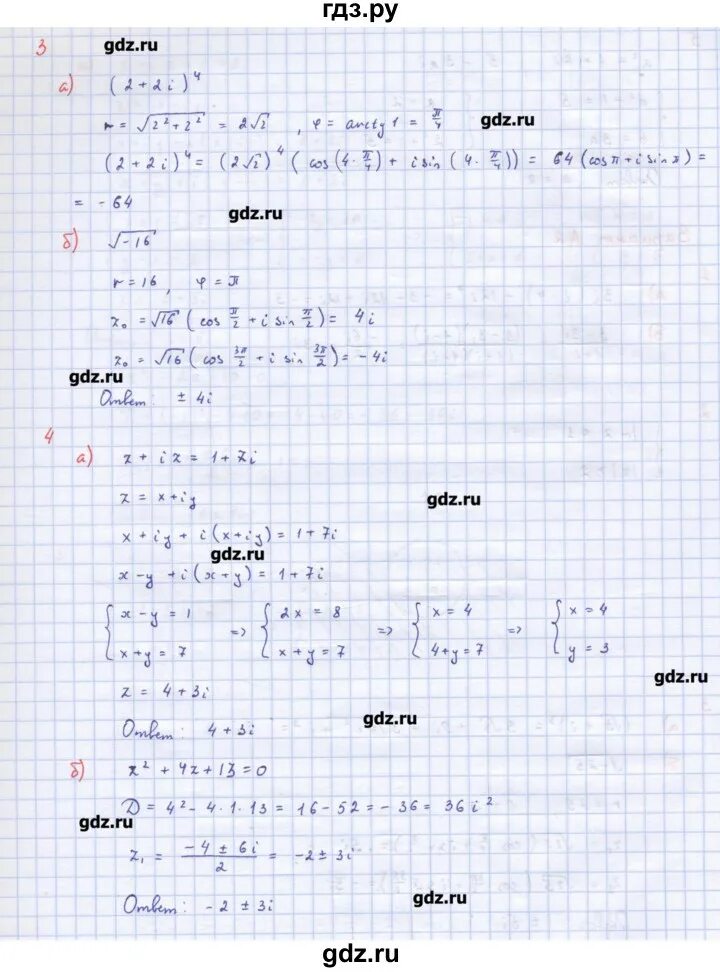 гдз.ру
3 gdz.ru
а) (2 + 2i)^4
r = √(2² + 2²) = 2√2 , φ = arctg 1 = π/4 gdz.ru
(2 + 2i)^4 = (2√2)^4 (cos(4·π/4) + i sin(4·π/4)) = 64(cosπ + i sinπ) =
= -64 gdz.ru
б) √-16
r = 16, φ = π
z₀ = √16 (cos π/2 + i sin π/2) = 4i
z₀ = √16 (cos 3π/2 + i sin 3π/2) = -4i
gdz.ru
Ответ: ± 4i
4
а) z + iz = 1 + 7i
z = x + iy gdz.ru
x + iy + i(x + iy) = 1 + 7i
gdz.ru
x - y + i(x + y) = 1 + 7i
{ x - y = 1 => { 2x = 8 => { x = 4 => { x = 4
{ x + y = 7 { x + y = 7 { 4 + y = 7 { y = 3
gdz.ru
z = 4 + 3i
Ответ: 4 + 3i gdz.ru
б) z² + 4z + 13 = 0
D = 4² - 4·1·13 = 16 - 52 = -36 = 36i²
gdz.ru
z₁ = (-4 ± 6i)/2 = -2 ± 3i
Ответ: -2 ± 3i gdz.ru
gdz.ru